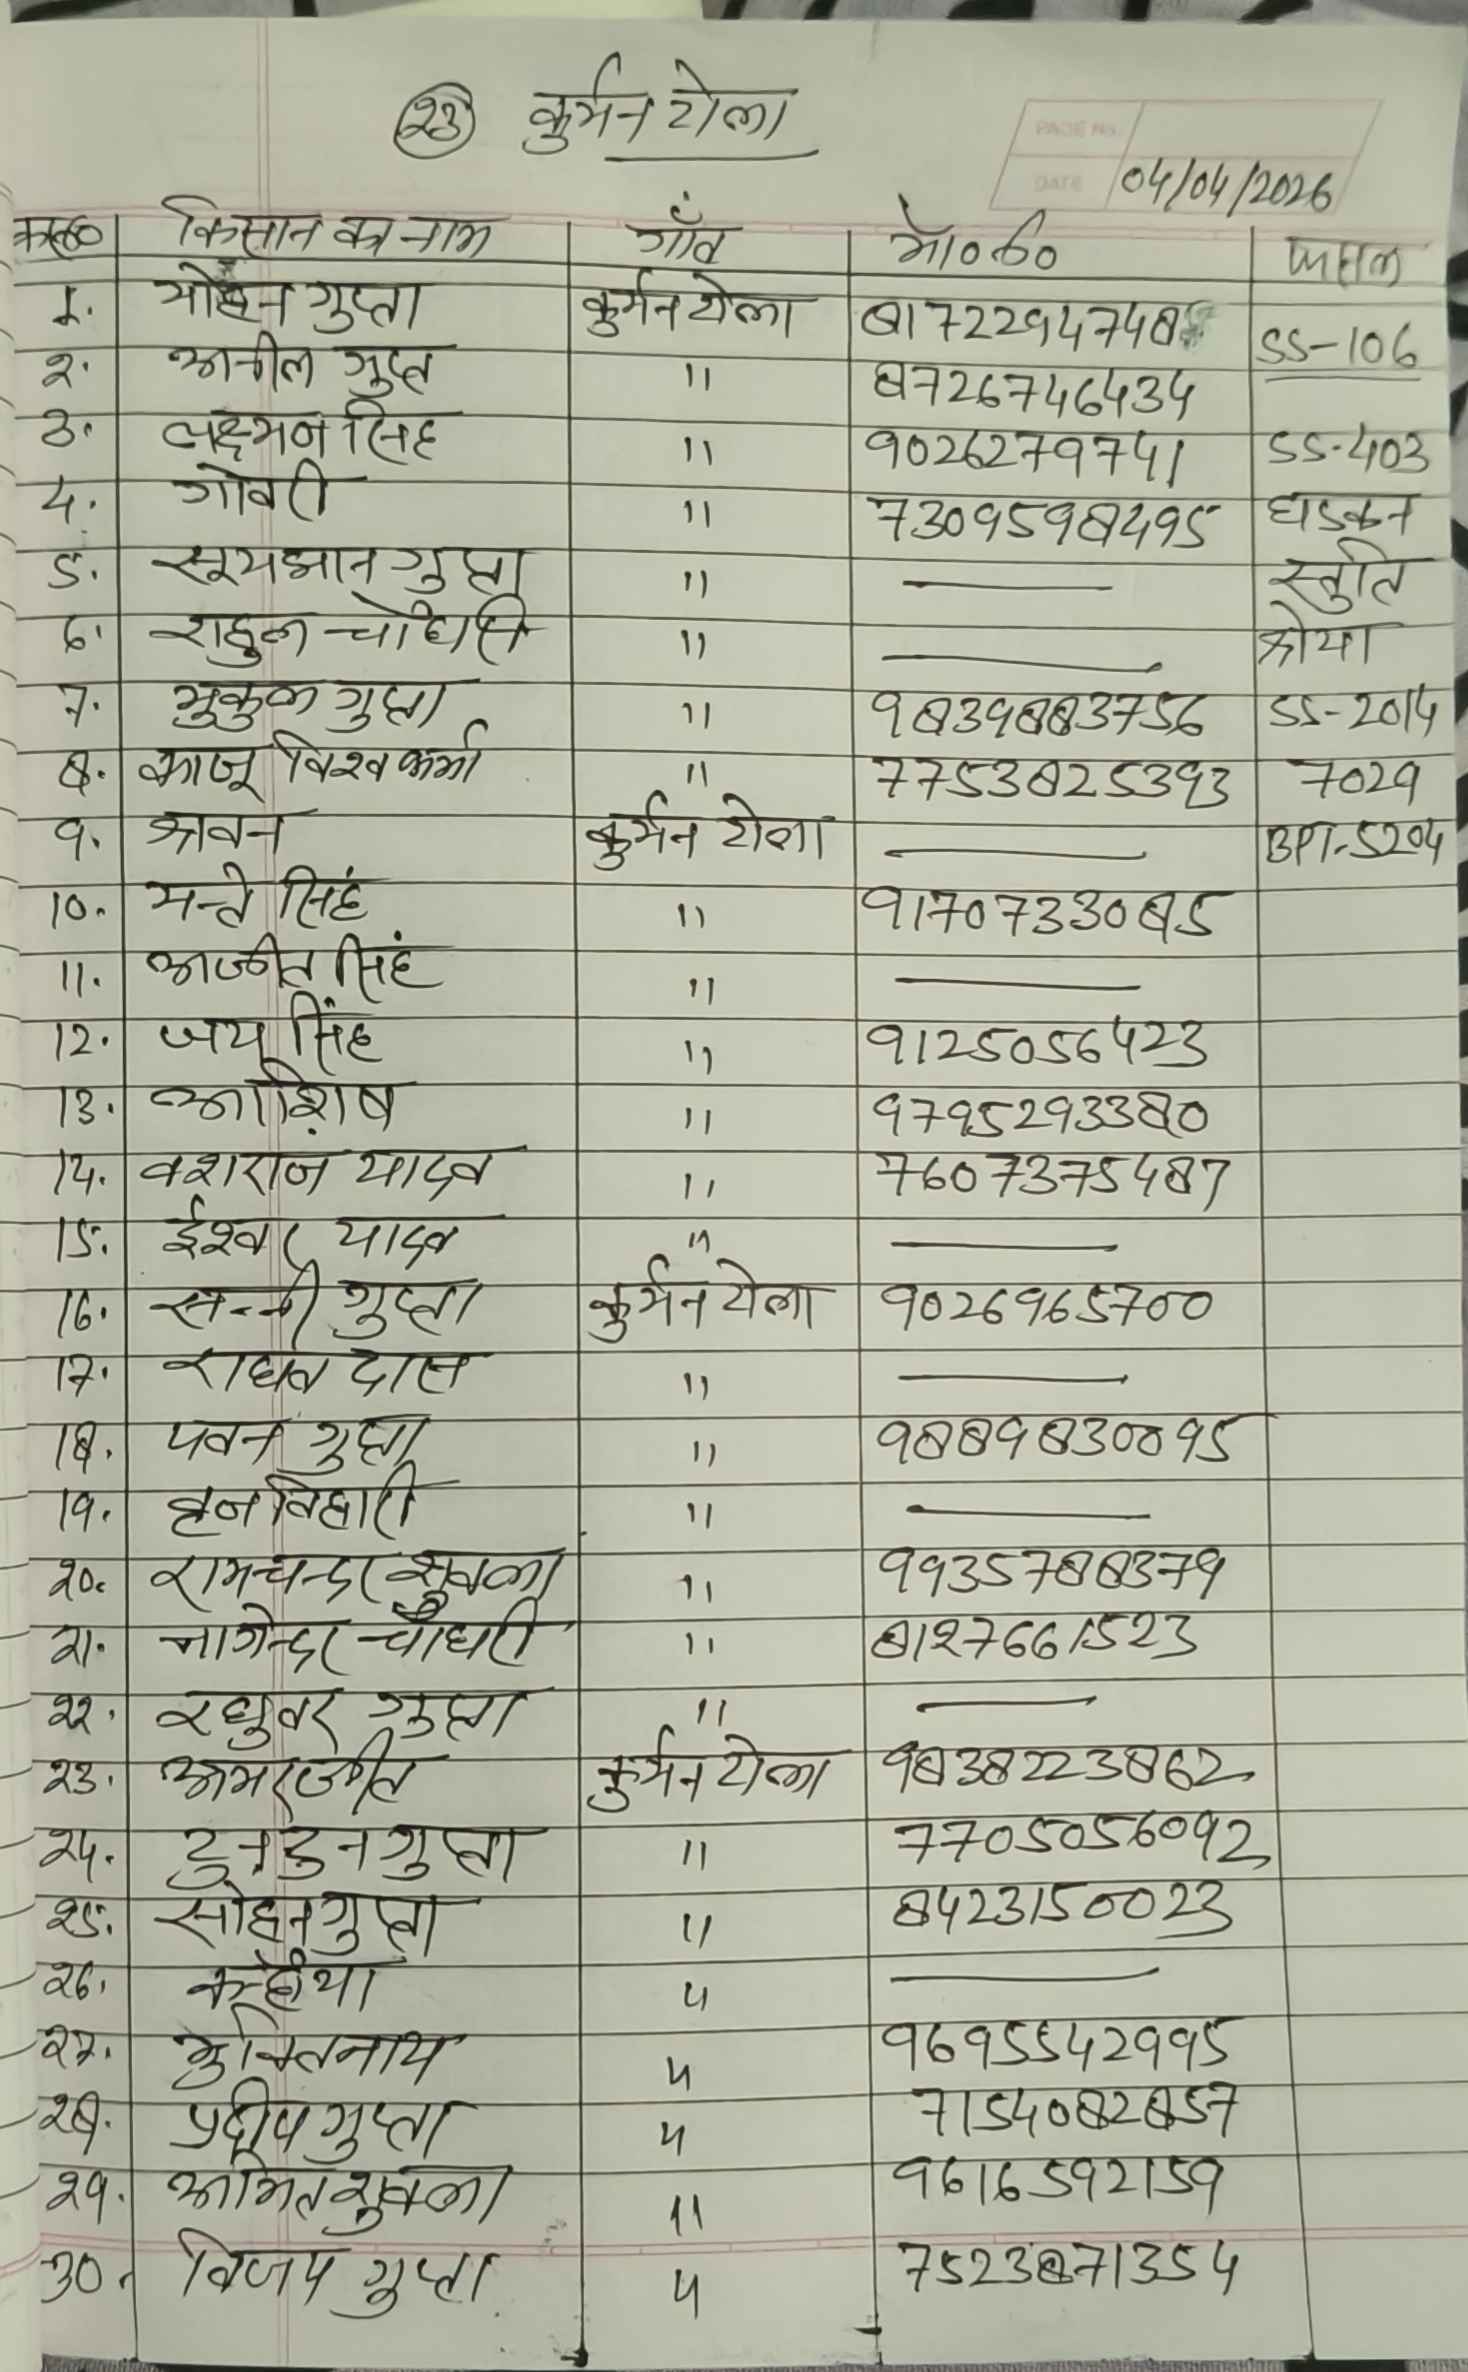 23 कुर्मन टोला
PAGE No.
DATE 04/04/2026
क्र०सं० किसान का नाम गाँव मो०नं० फसल
1. मोहन गुप्ता कुर्मन टोला 8172294748 SS-106
2. अनील गुप्त " 8726746434
3. लक्ष्मन सिंह " 9026279741 SS-403
4. गोवरी " 7309598495 धडकन
5. सूर्यभान गुप्ता " — स्तुति
6. राहुल चौधरी " — श्रेया
7. मुकुल गुप्ता " 9839883756 SS-2014
8. काजू विश्वकर्मा " 7753825393 7029
9. श्रवन कुर्मन टोला — BPT-5204
10. मन्ते सिंह " 9170733085
11. अजीत सिंह " —
12. जय सिंह " 9125056423
13. आशिष " 9795293380
14. वंशराज यादव " 7607375487
15. ईश्वर यादव " —
16. सन्नी गुप्ता कुर्मन टोला 9026965700
17. राघव दास " —
18. पवन गुप्ता " 9889830095
19. ब्रजबिहारी " —
20. रामचन्द्र शुक्ला " 9935788379
21. नागेन्द्र चौधरी " 8127661523
22. रघुवर गुप्ता " —
23. अमरजीत कुर्मन टोला 9838223862
24. टुनटुन गुप्ता " 7705056092
25. सोहन गुप्ता " 8423150023
26. कन्हैया " —
27. मुक्तिनाथ " 9695542995
28. प्रदीप गुप्ता " 7154082857
29. अमित शुक्ला " 9616592159
30. विजय गुप्ता " 7523871354